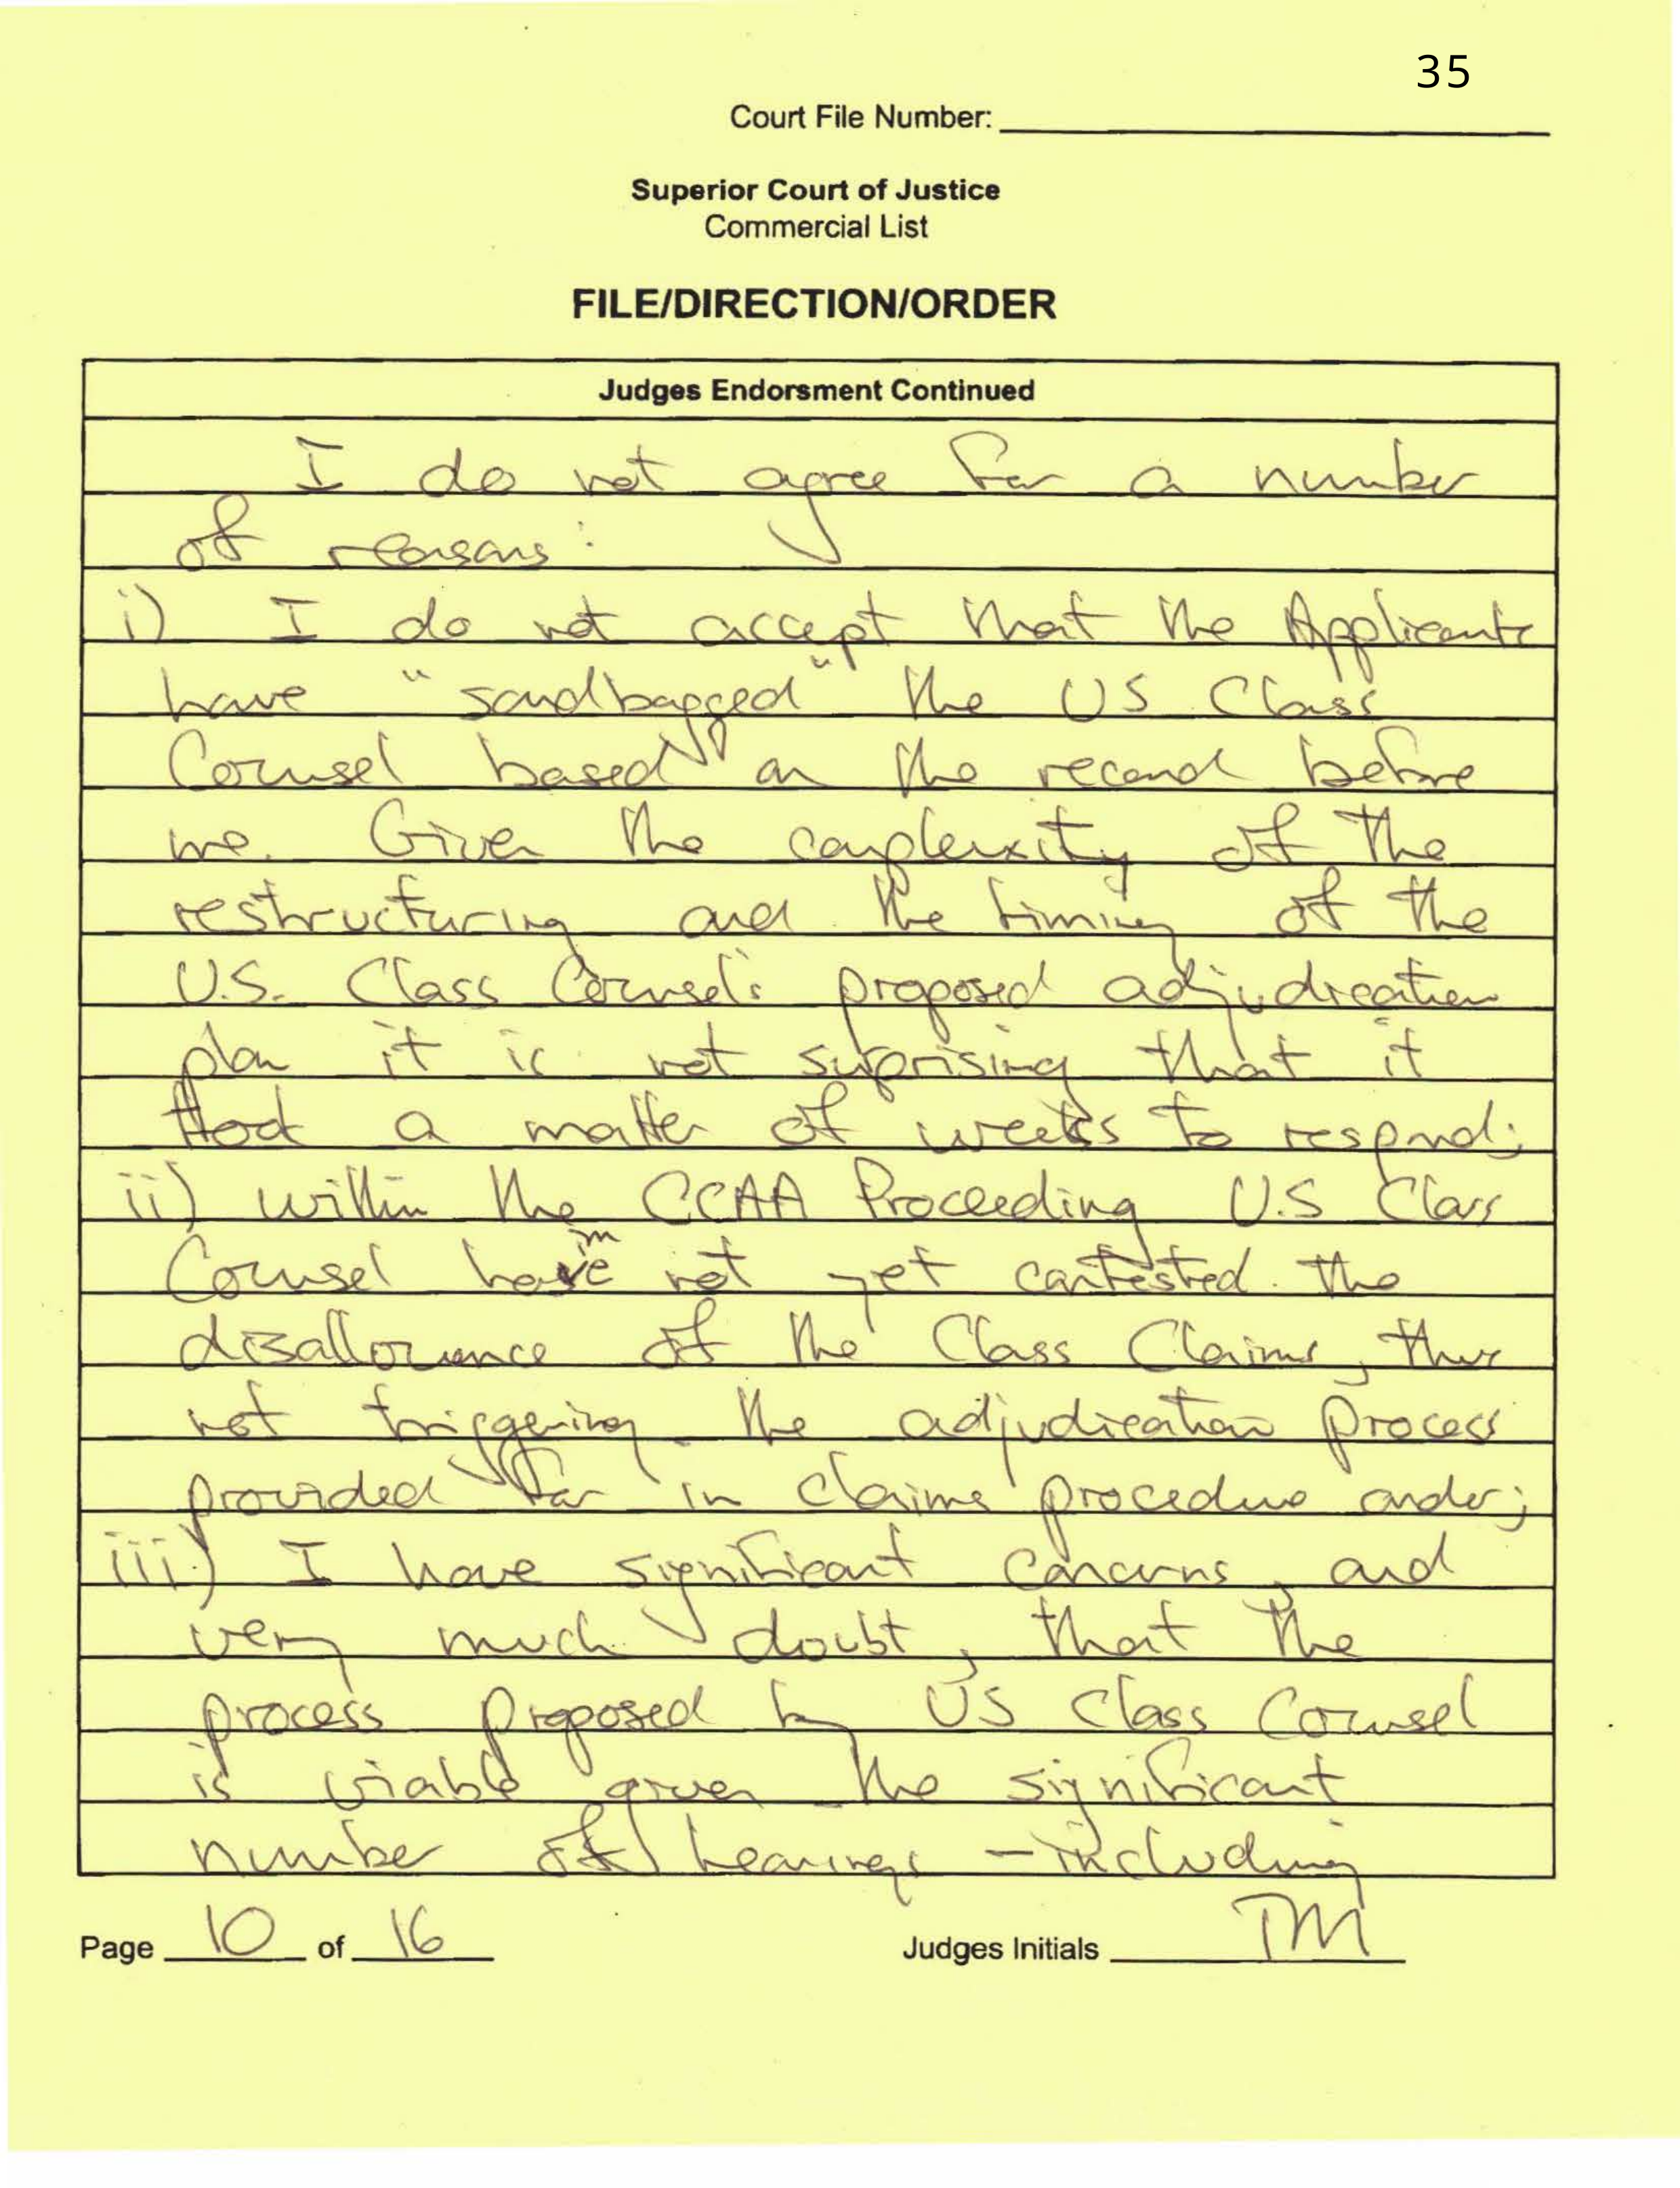 35
Court File Number:
Superior Court of Justice
Commercial List
FILE/DIRECTION/ORDER
Judges Endorsment Continued
I do not agree for a number
of reasons:
i) I do not accept that the Applicants
have "sandbagged" the US Class
Counsel based on the record before
me. Given the complexity of the
restructuring and the timing of the
U.S. Class Counsel's proposed adjudication
plan it is not surprising that it
took a matter of weeks to respond;
ii) within the CCAA Proceeding U.S Class
Counsel have not yet contested the
disallowance of the Class Claims, thus
not triggering the adjudication process
provided for in claims procedure order;
iii) I have significant concerns, and
very much doubt, that the
process proposed by US Class Counsel
is viable given the significant
number of hearings - including
Page 10 of 16
Judges Initials TM